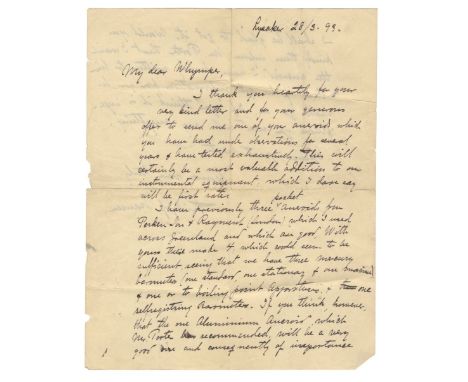 Lysaker 28/3. 93.
My dear Whymper,
I thank you heartily for your
very kind letter and for your generous
offer to send me one of your aneroid which
you have had under observations for several
years & have tested exhaustively. This will
certainly be a most valuable additions to our
instrumental equipment, which I dare say
will be first rate.
pocket
I have previously three aneroids from
& Raymend, London, which I used
across Greenland and which are good. With
yours these make 4 which would seem to be
sufficient seeing that we have three mercury
barometers, one standard one stationary & one
& one or to boiling point apparatus, & one
selfregistring Barometer. If you think however,
that the one Aluminium Aneroid which
Mr. recommended, will be a very
good one and consequently of importance